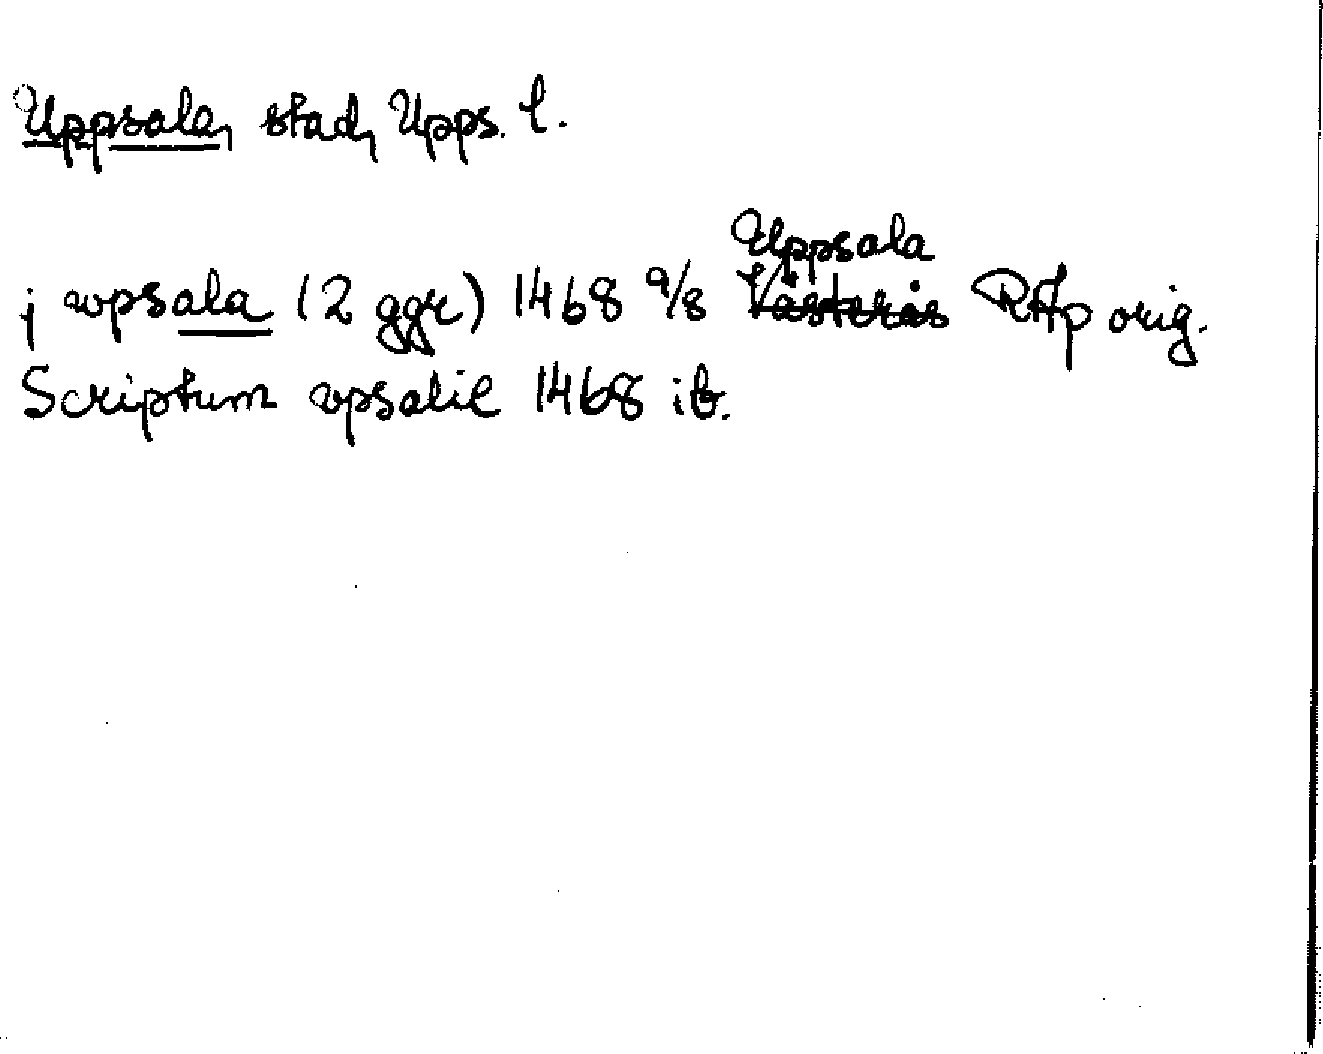 Uppsala, stad, Upps. l.
j wpsala (2 ggr) 1468 9/8 Uppsala RAp orig.
Scriptum vpsalie 1468 ib.